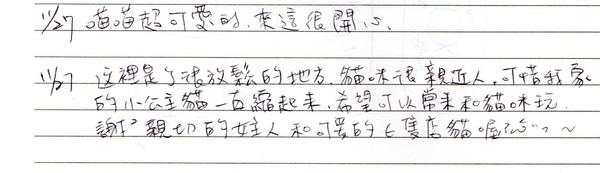 11/27 喵喵超可愛的，來這很開心。
11/27 这裡是个很放鬆的地方，貓咪很親近人，可惜我家
的小公主貓一直縮起來，希望可以常来和貓咪玩，
謝謝親切的女主人和可愛的七隻店貓喔 ~